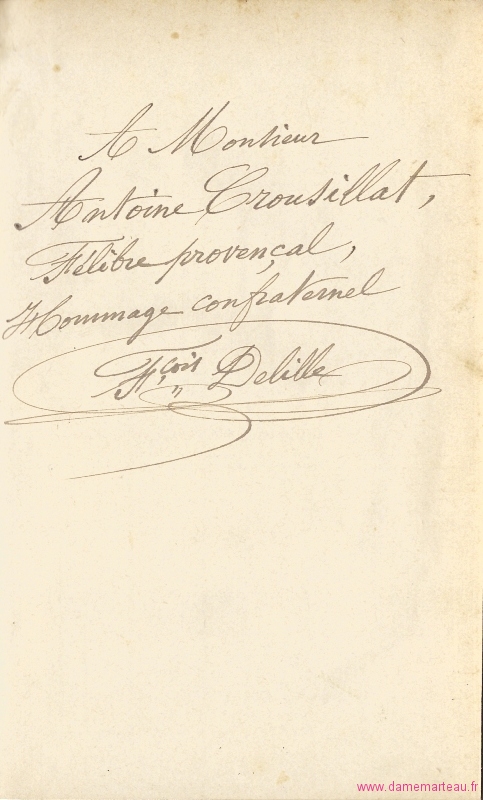 A Monsieur
Antoine Crousillat,
Félibre provençal,
Hommage confraternel
Fçois Delille
www.damemarteau.fr